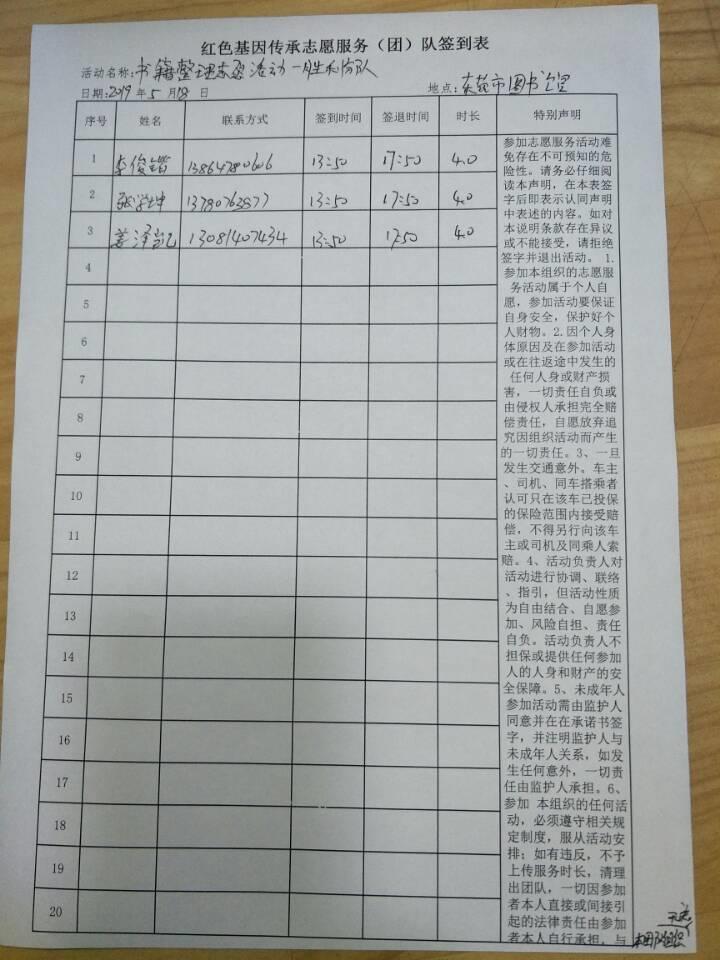 红色基因传承志愿服务（团）队签到表
活动名称:书籍整理志愿活动一月生水分队
日期:2019年5月18日 地点:东莞市图书馆
序号 姓名 联系方式 签到时间 签退时间 时长 特别声明
1 李俊锴 13864780606 13:50 17:50 4.0
2 张学坤 13780763877 13:50 17:50 4.0
3 姜泽凯 13081407434 13:50 17:50 4.0
4
5
6
7
8
9
10
11
12
13
14
15
16
17
18
19
20
参加志愿服务活动难
免存在不可预知的危
险性。请务必仔细阅
读本声明，在本表签
字后即表示认同声明
中表述的内容。如对
本说明条款存在异议
或不能接受，请拒绝
签字并退出活动。 1.
参加本组织的志愿服
务活动属于个人自
愿，参加活动要保证
自身安全，保护好个
人财物。2.因个人身
体原因及在参加活动
或在往返途中发生的
任何人身或财产损
害，一切责任自负或
由侵权人承担完全赔
偿责任，自愿放弃追
究因组织活动而产生
的一切责任。3、一旦
发生交通意外。车主
、司机、同车搭乘者
认可只在该车已投保
的保险范围内接受赔
偿，不得另行向该车
主或司机及同乘人索
赔。4、活动负责人对
活动进行协调、联络
、指引，但活动性质
为自由结合、自愿参
加、风险自担、责任
自负。活动负责人不
担保或提供任何参加
人的人身和财产的安
全保障。5、未成年人
参加活动需由监护人
同意并在在承诺书签
字，并注明监护人与
未成年人关系，如发
生任何意外，一切责
任由监护人承担。6、
参加 本组织的任何活
动，必须遵守相关规
定制度，服从活动安
排；如有违反，不予
上传服务时长，清理
出团队，一切因参加
者本人直接或间接引
起的法律责任由参加
者本人自行承担，与